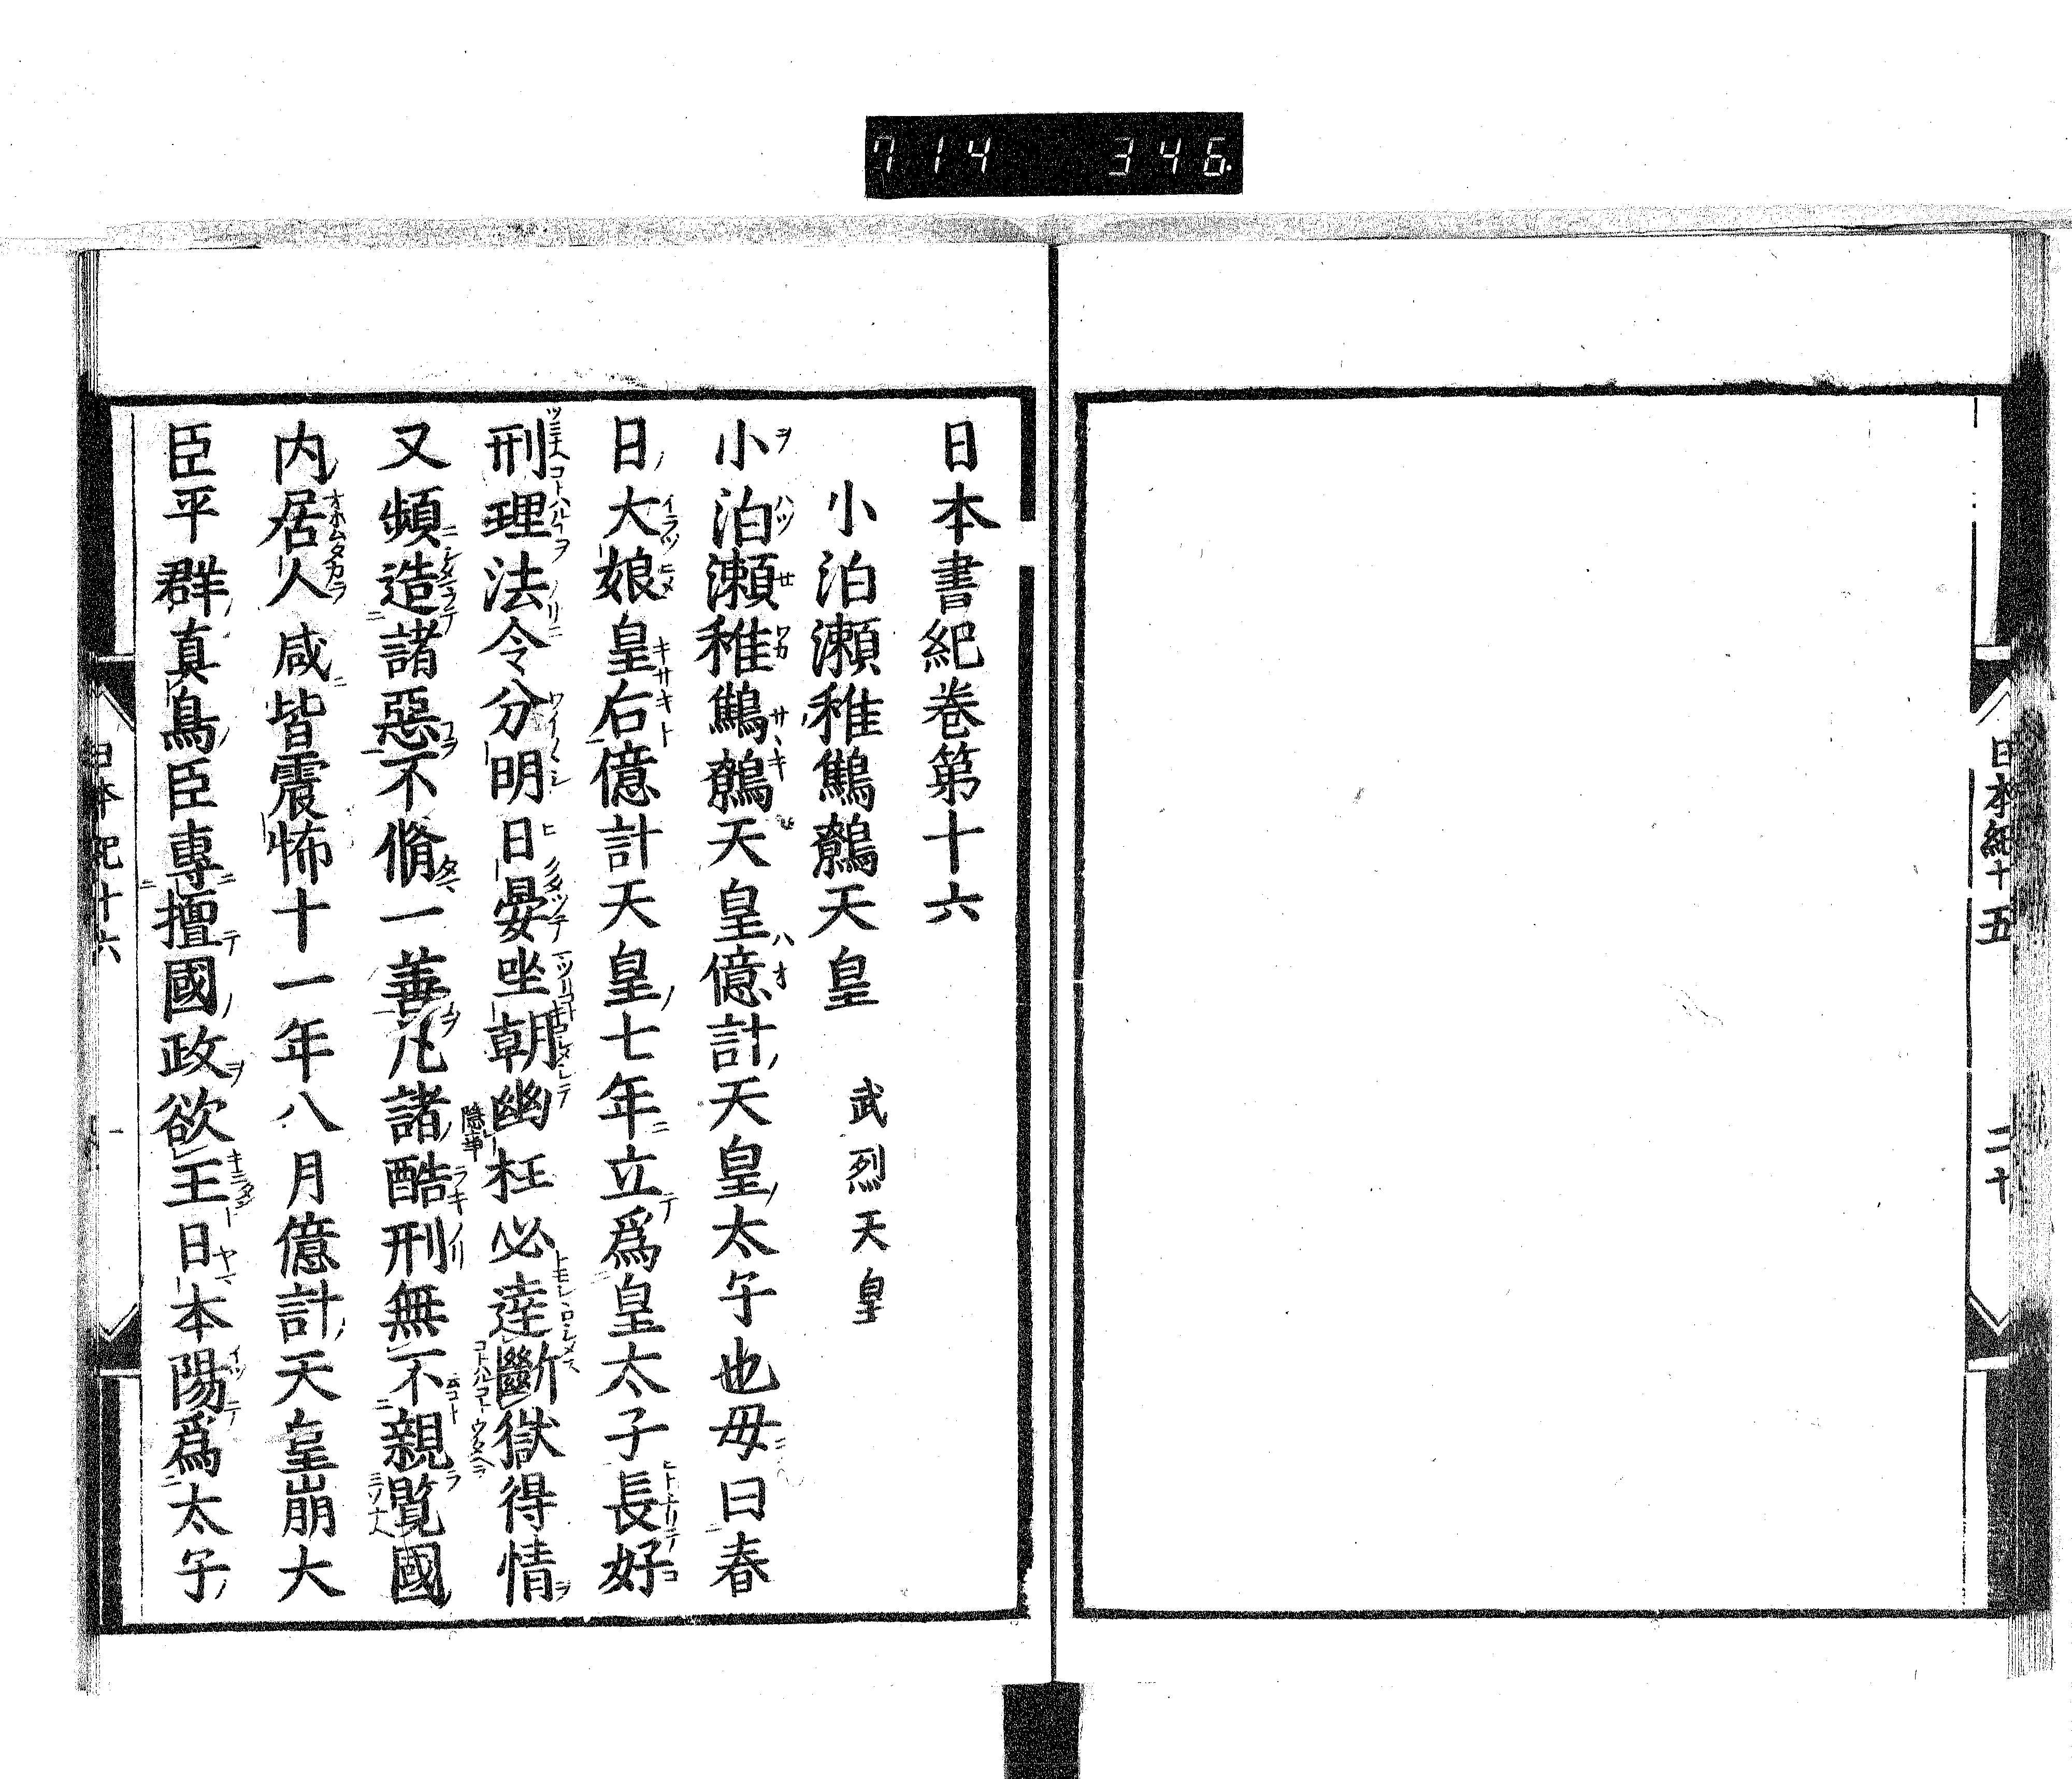 714 346
日本紀十五 二十
日本書紀卷第十六
小泊瀬稚鷦鷯天皇 武烈天皇
小泊瀬稚鷦鷯天皇億計天皇太子也母曰春
日大娘皇后億計天皇七年立爲皇太子長好
刑理法令分明日晏坐朝幽枉必達斷獄得情
又頻造諸惡不脩一善凡諸酷刑無不親覧國
内居人咸皆震怖十一年八月億計天皇崩大
臣平群真鳥臣專擅國政欲王日本陽爲太子
日本紀十六 一